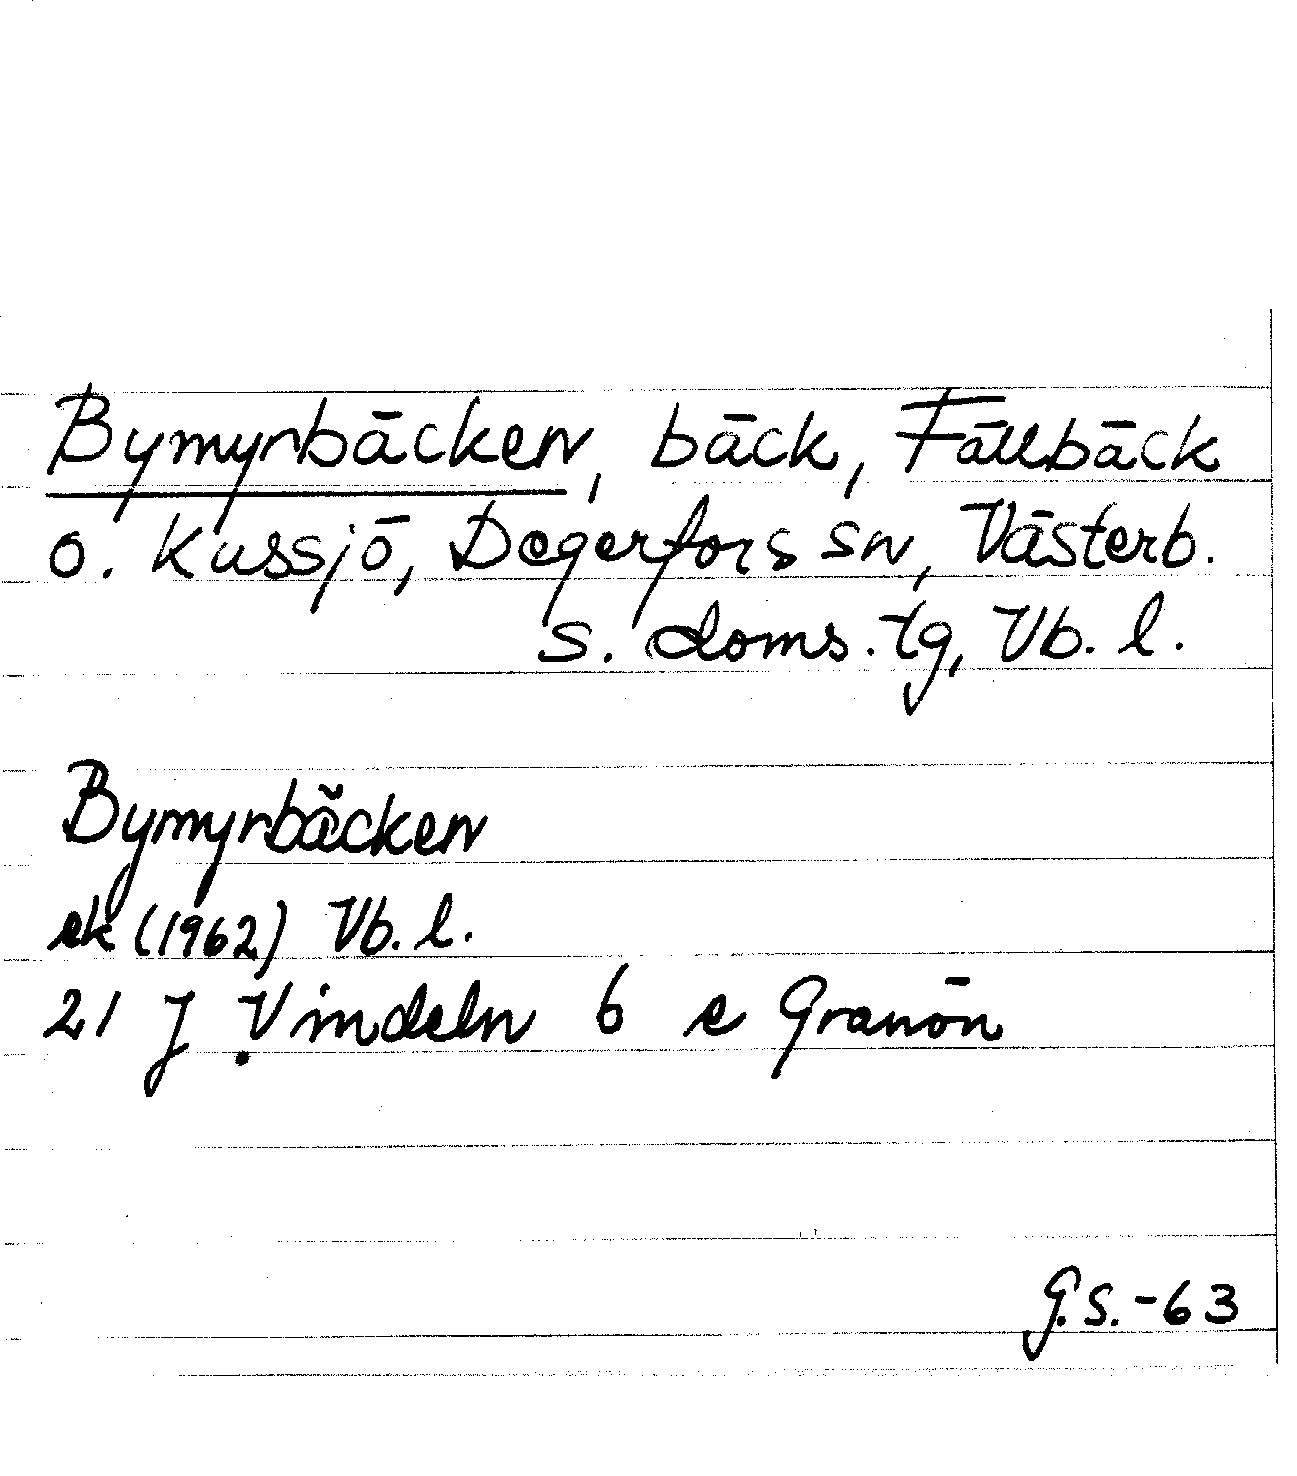 Bymyrbäcken, bäck, Fällbäck
o. Kussjö, Degerfors sn, Västerb.
s. doms.tg, Vb. l.
Bymyrbäcken
ek (1962) Vb. l.
21 J Vindeln 6 e Granön
G.S.-63